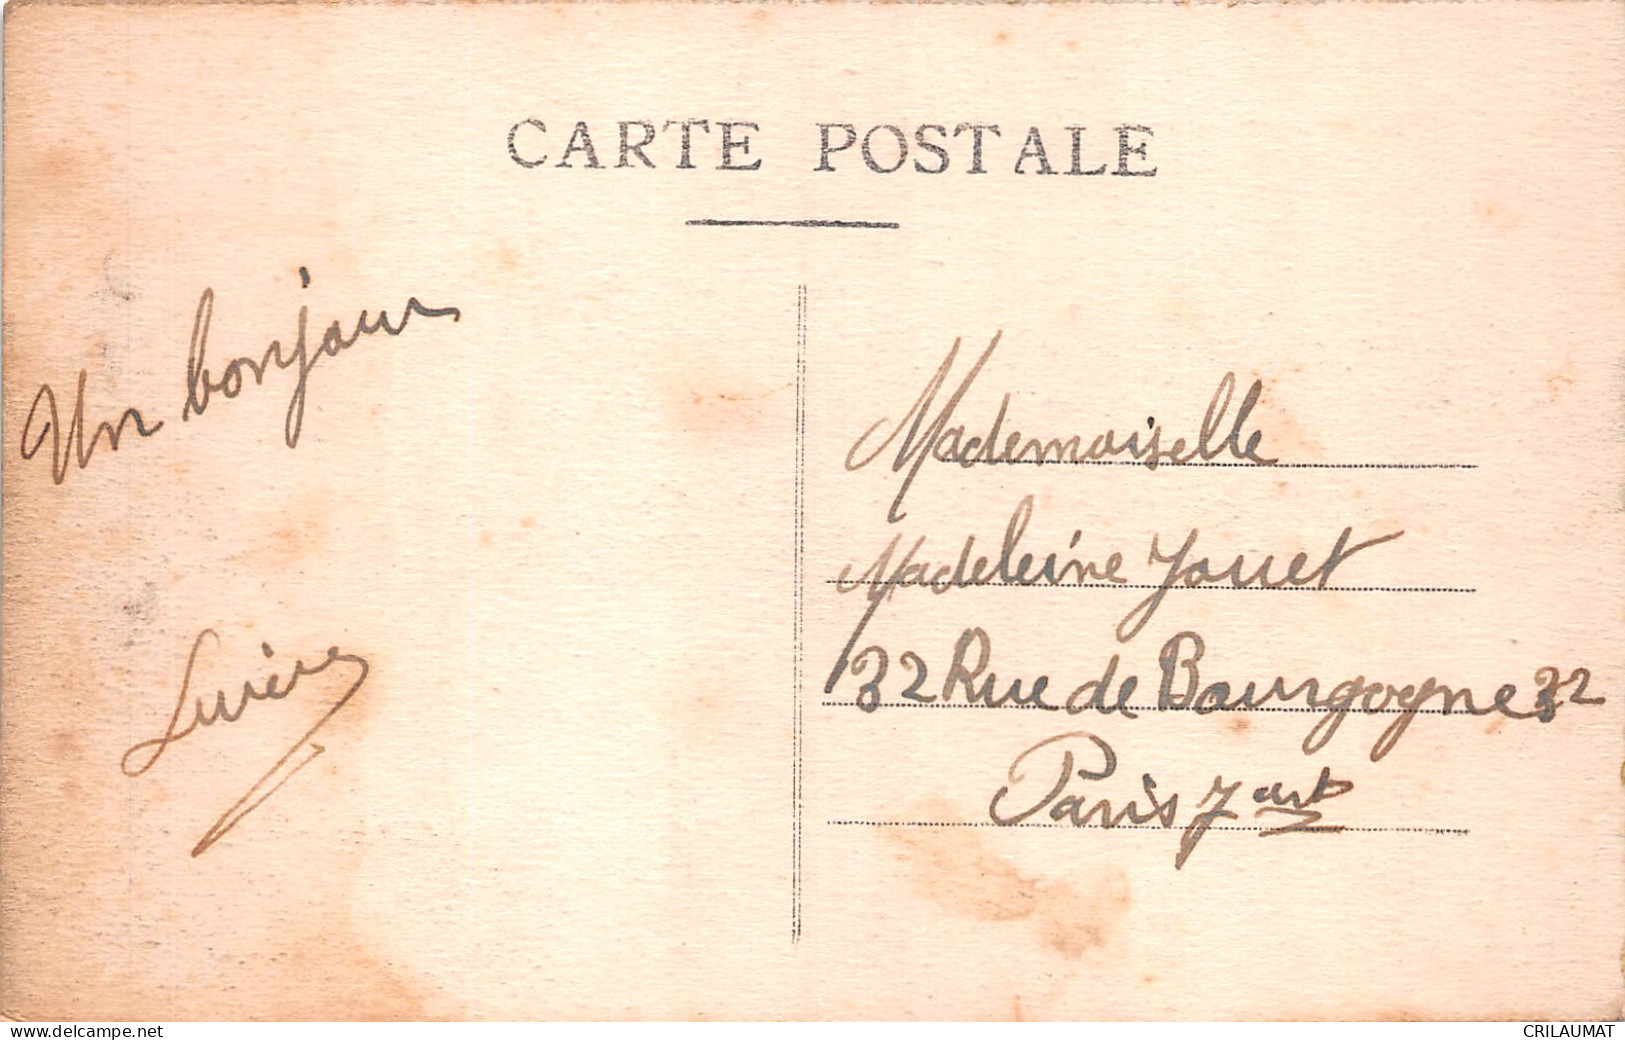 CARTE POSTALE
Un bonjour
Mademoiselle
Madeleine Jouet
32 Rue de Bourgogne 32
Paris 7 art
www.delcampe.net
CRILAUMAT